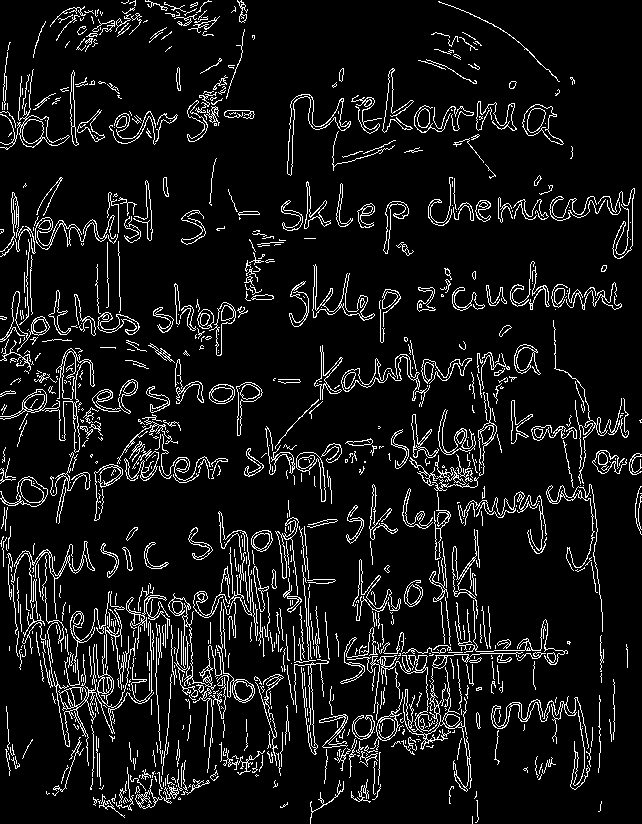 baker's - piekarnia
chemist's - sklep chemiczny
clothes shop - sklep z ciuchami
coffee shop - kawiarnia
computer shop - sklep komput
music shop - sklep muzyczny
newsagent's - kiosk
pet shop - sklep z
zoologiczny